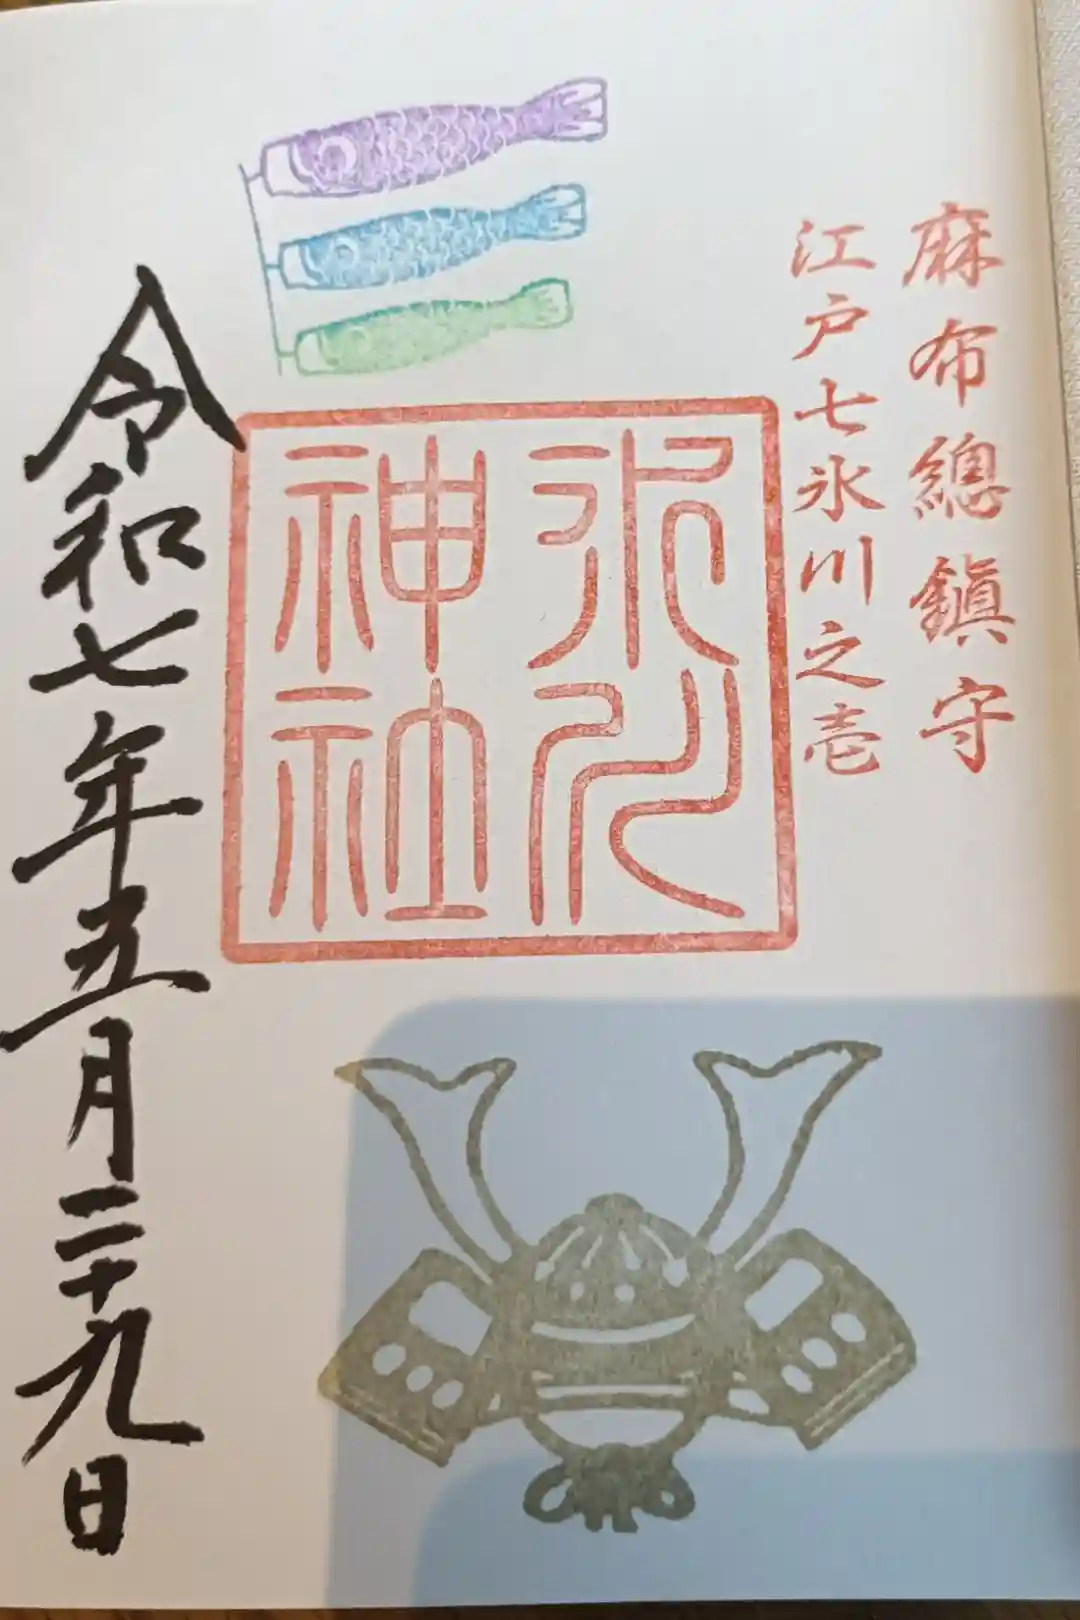 麻布總鎭守
江戸七氷川之壱
氷川
神社
令和七年五月二十九日